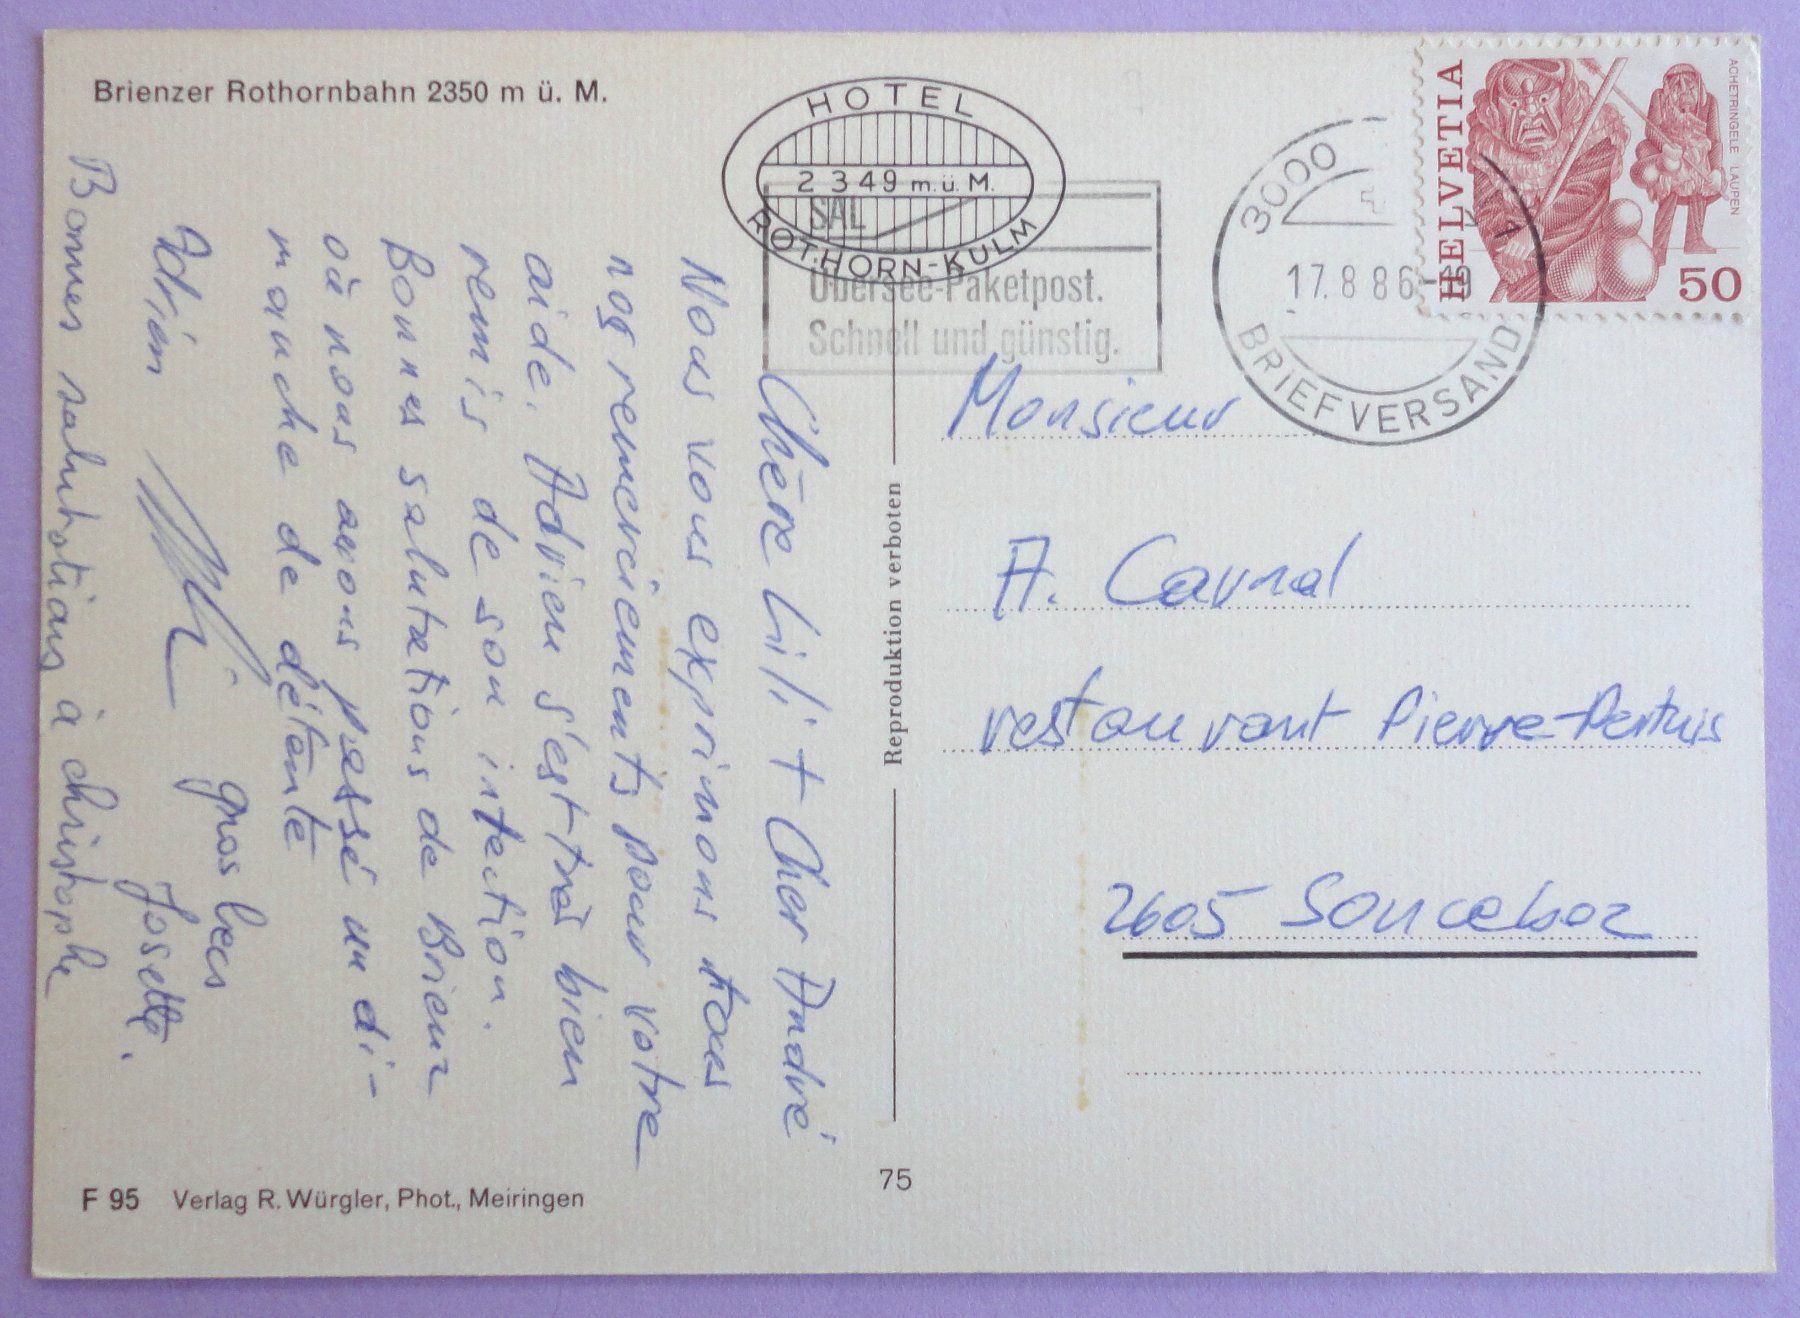 Brienzer Rothornbahn 2350 m ü. M.
HOTEL
2349 m.ü.M.
ROTHORN-KULM
SAL
Übersee-Paketpost.
Schnell und günstig.
3000
17.8.86-19
BRIEFVERSAND
HELVETIA
ACHETRINGELE LAUPEN
50
Chère Lili + Cher André
Nous vous exprimons tous
nos remerciements pour votre
aide. Adrien s'est très bien
remis de son infection.
Bonnes salutations de Brienz
où nous avons passé un di-
manche de détente
gros becs
Adrien Josette.
Bonnes salutations à christophe
Reproduktion verboten
Monsieur
A. Carnal
restaurant Pierre-Pertuis
2605 Sonceboz
F 95 Verlag R. Würgler, Phot., Meiringen
75